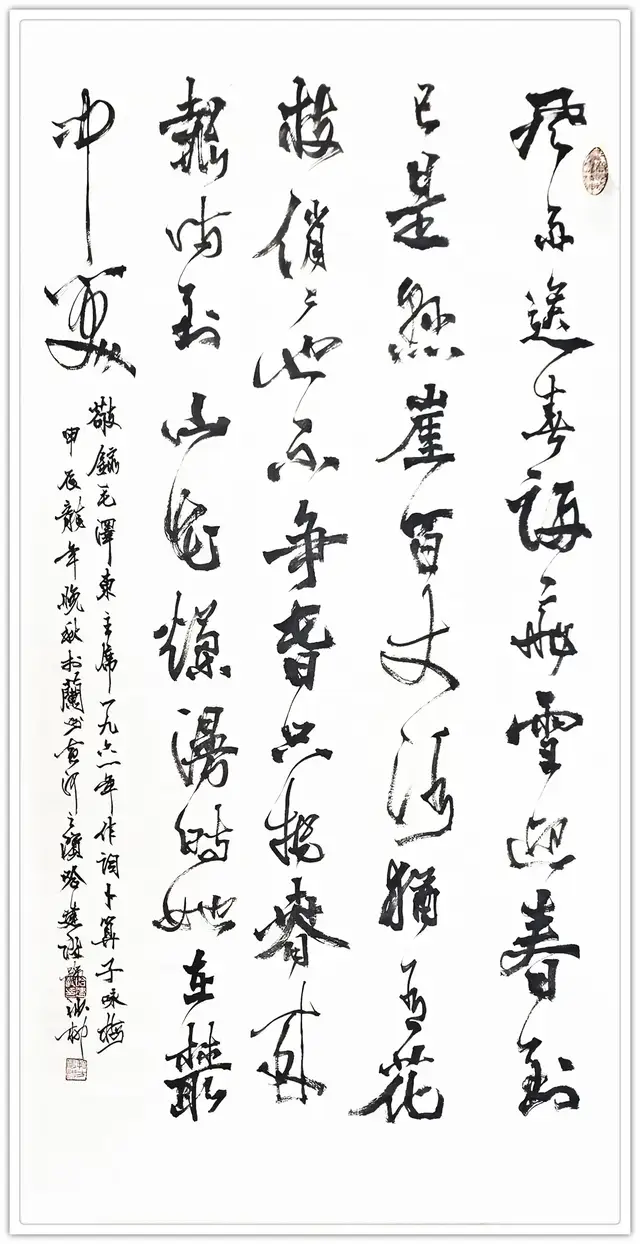 风雨送春归飞雪迎春到
已是悬崖百丈冰猶有花
枝俏俏也不争春只把春来
報待到山花爛漫時她在叢
中笑
敬錄毛澤東主席一九六一年作词卜算子咏梅
甲辰龍年晚秋於蘭州黄河之濱